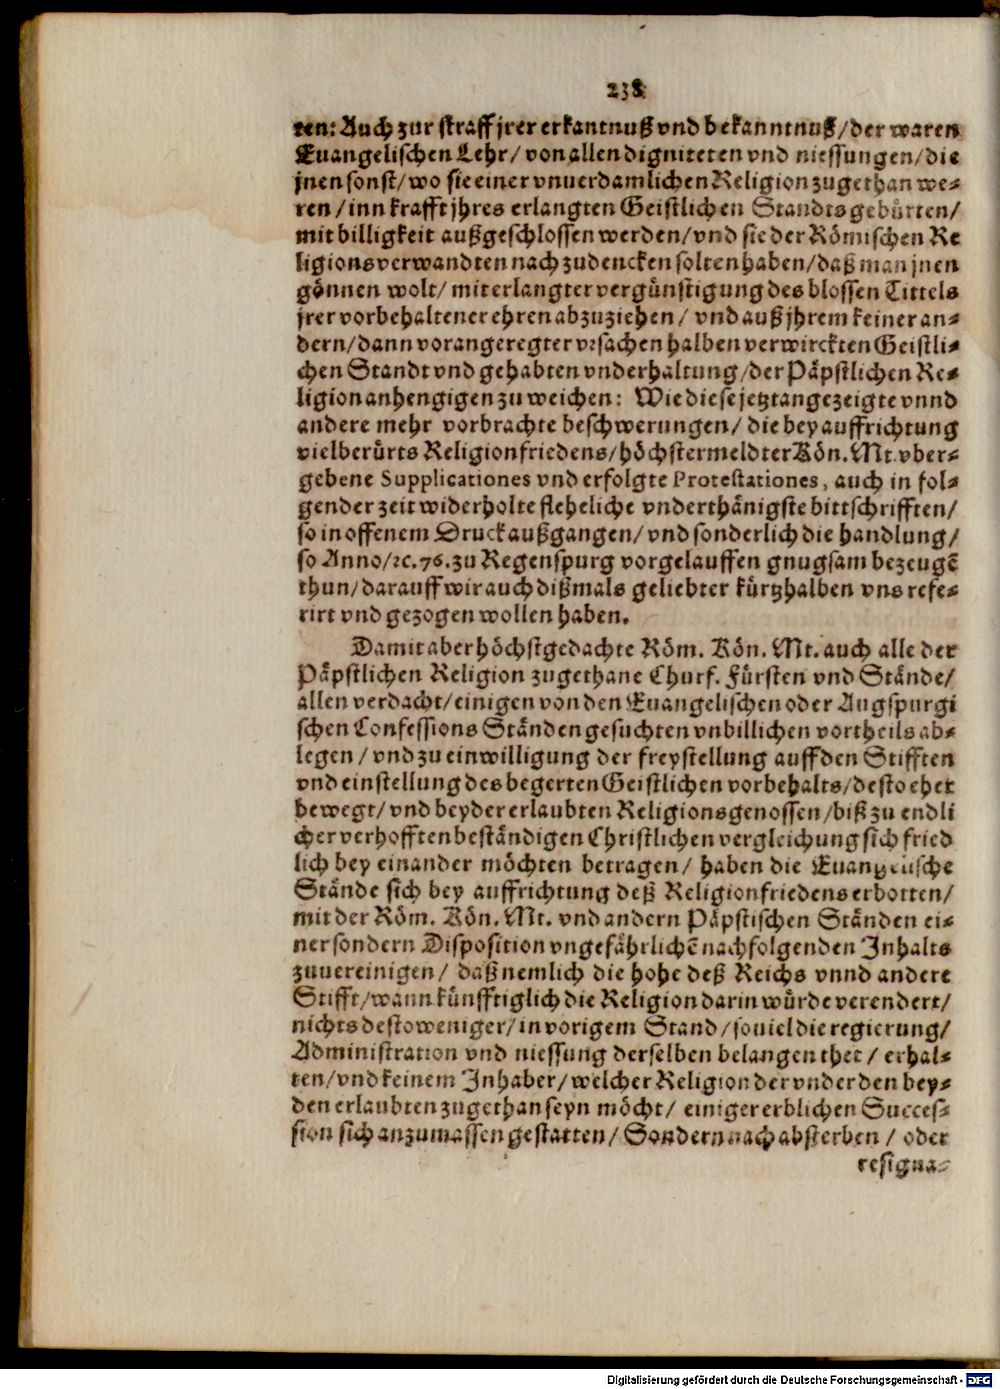 238.
ren: Auch zur straff jrer erkantnuß vnd bekanntnuß/ der waren
Euangelischen Lehr/ von allen digniteten vnd niessungen/ die
jnen sonst/ wo sie einer vnuerdamlichen Religion zugethan we-
ren/ inn krafft jhres erlangten Geistlichen Standts gebürten/
mit billigkeit außgeschlossen werden/ vnd sie der Römischen Re
ligionsverwandten nachzudencken solten haben/ daß man jnen
gönnen wolt/ mit erlangter vergünstigung des blossen Tittels
jrer vorbehaltener ehren abzuziehen/ vnd auß jhrem keiner an-
dern/ dann vorangeregter vrsachen halben verwirckten Geistli-
chen Standt vnd gehabten vnderhaltung/ der Päpstlichen Re-
ligion anhengigen zu weichen: Wie diese jetzt angezeigte vnnd
andere mehr vorbrachte beschwerungen/ die bey auffrichtung
vielberürts Religionfriedens/ höchstermeldter Kön. Mt. vber-
gebene Supplicationes vnd erfolgte Protestationes, auch in fol-
gender zeit widerholte fleheliche vnderthänigste bittschrifften/
so in offenem Druck außgangen/ vnd sonderlich die handlung/
so Anno/ ꝛc. 76. zu Regenspurg vorgelauffen gnugsam bezeugē
thun/ darauff wir auch dißmals geliebter kürtzhalben vns refe-
rirt vnd gezogen wollen haben.
Damit aber höchstgedachte Röm. Kön. Mt. auch alle der
Päpstlichen Religion zugethane Churf. Fürsten vnd Stände/
allen verdacht/ einigen von den Euangelischen oder Augspurgi
schen Confessions Ständen gesuchten vnbillichen vortheils ab-
legen/ vnd zu einwilligung der freystellung auff den Stifften
vnd einstellung des begerten Geistlichen vorbehalts/ desto eher
bewegt/ vnd beyder erlaubten Religionsgenossen/ biß zu endli
cher verhofften beständigen Christlichen vergleichung sich fried
lich bey einander möchten betragen/ haben die Euangelische
Stände sich bey auffrichtung deß Religionfriedens erbotten/
mit der Röm. Kön. Mt. vnd andern Päpstischen Ständen ei-
ner sondern Disposition vngefährlichē nachfolgenden Inhalts
zuuereinigen/ daß nemlich die hohe deß Reichs vnnd andere
Stifft/ wann künfftiglich die Religion darin würde verendert/
nichts destoweniger/ in vorigem Stand/ souiel die regierung/
Administration vnd niessung derselben belangen thet/ erhal-
ten/ vnd keinem Inhaber/ welcher Religion der vnder den bey-
den erlaubten zugethan seyn möcht/ einiger erblichen Succes-
sion sich anzumassen gestatten/ Sondern nach absterben/ oder
resigna-
Digitalisierung gefördert durch die Deutsche Forschungsgemeinschaft - DFG